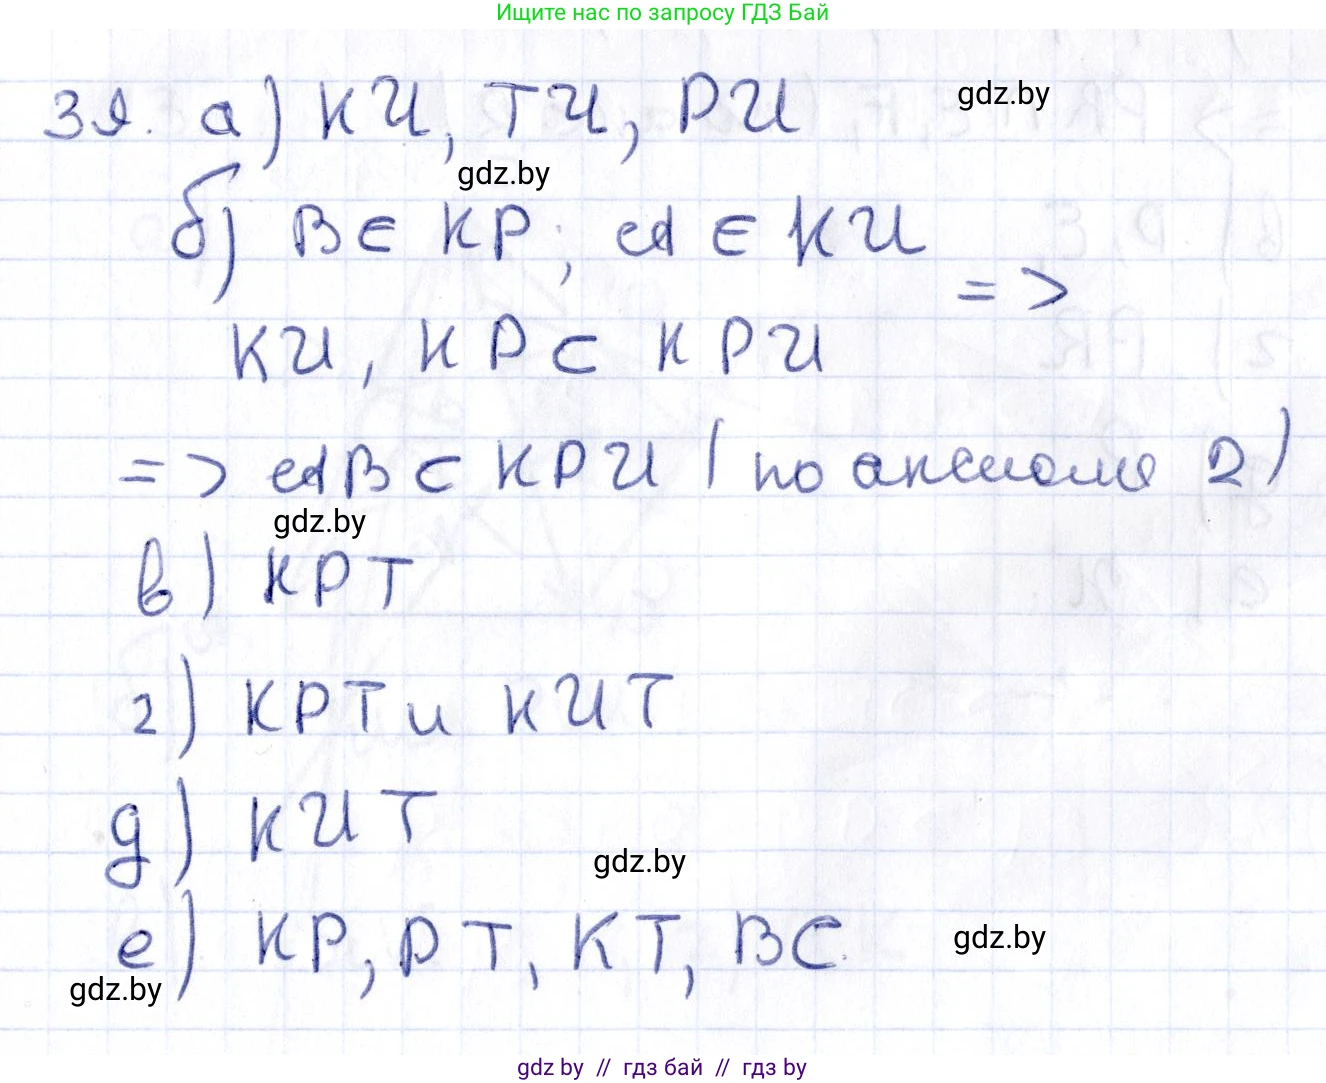 Ищите нас по запросу ГДЗ Бай
39. а) КИ, ТИ, РИ
gdz.by
gdz.by
б) В ∈ КР; А ∈ КИ
=>
КИ, КР ⊂ КРИ
=> АВ ⊂ КРИ (по аксиоме 2)
gdz.by
в) КРТ
г) КРТ и КИТ
д) КИТ
gdz.by
е) КР, РТ, КТ, ВС.
gdz.by
gdz.by
gdz by // гдз бай // gdz by